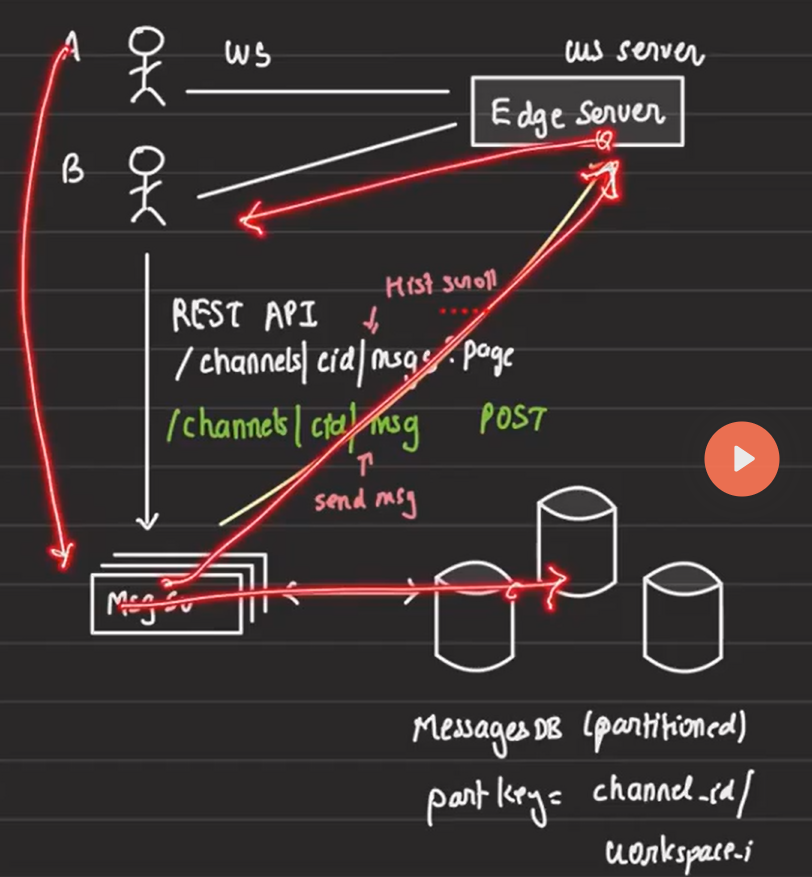 A
WS
WS server
Edge Server
B
Hist scroll
REST API
/channels/cid/msgs?page
/channels/cid/msg POST
send msg
Msg
MessagesDB (partitioned)
part key = channel_id/
workspace_i